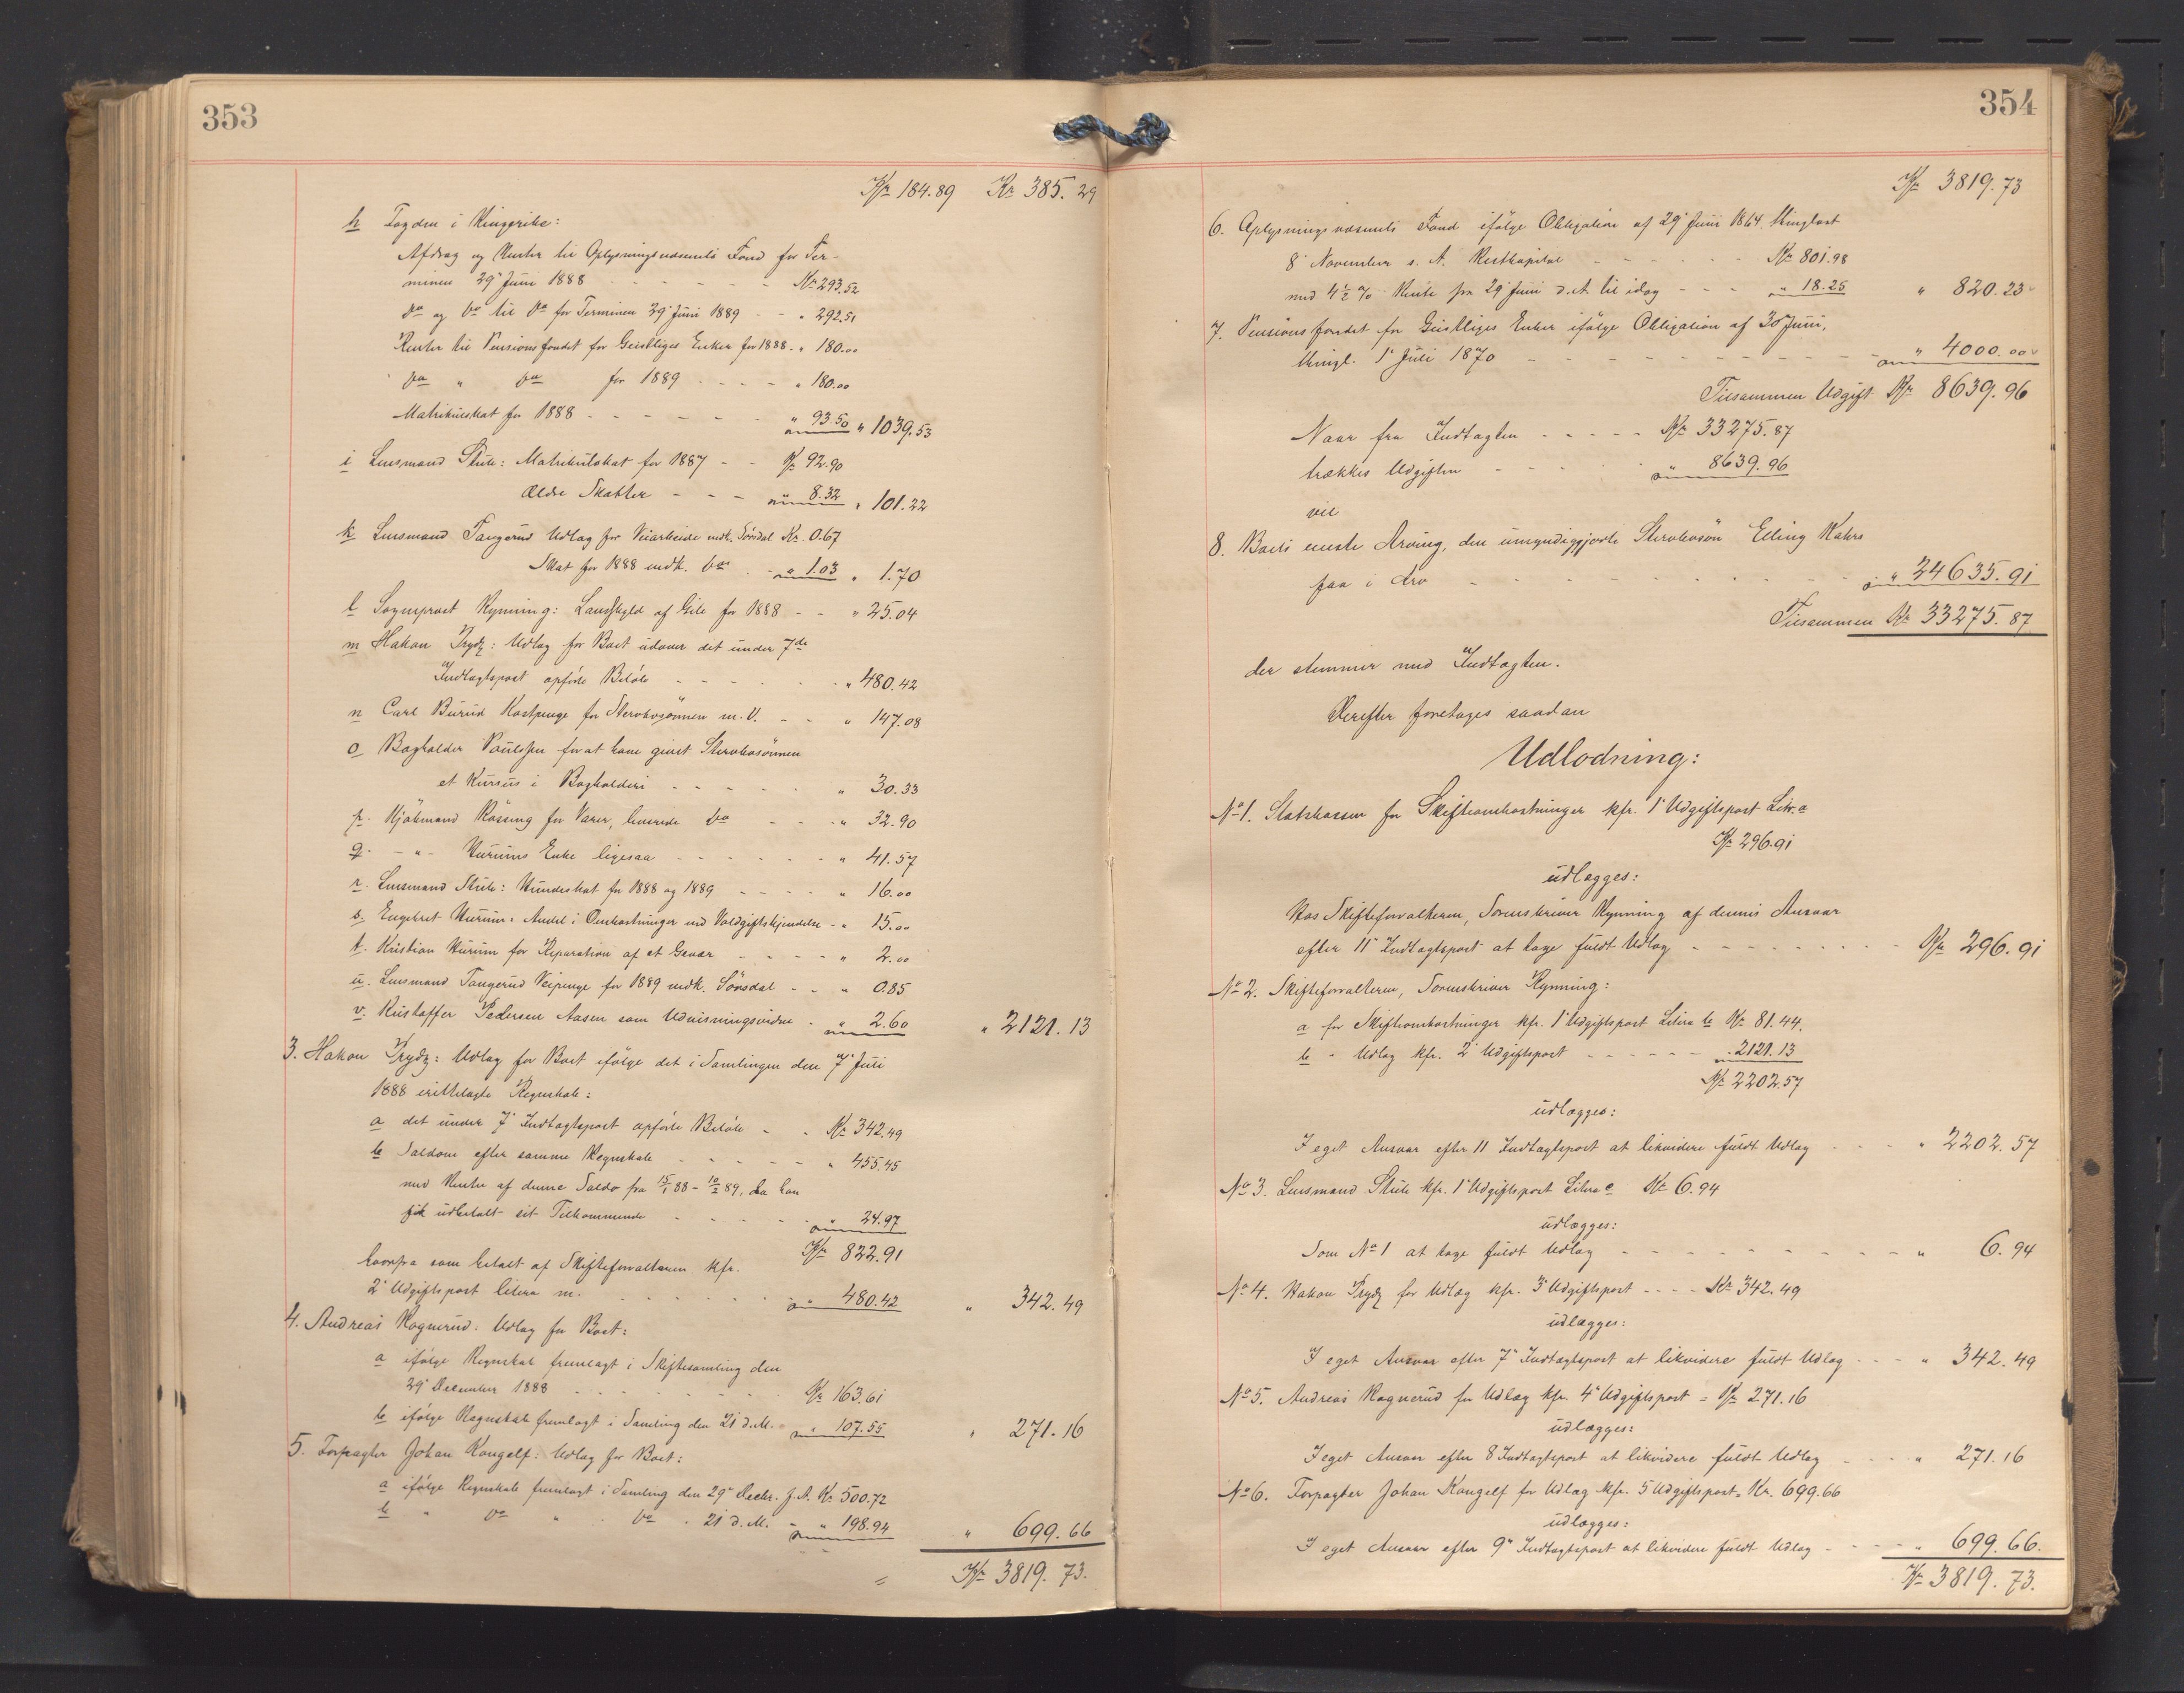 353
Kr 184.89 Kr. 385.29
h Fogden i Ringerike:
Afdrag og Renter til Oplysningsvæsenets Fond for Ter-
minen 29' Juni 1888 - - - - Kr 293.52
do og do til do for Terminen 29' Juni 1889 - - " 292.51
Renter til Pensionsfondet for Geistliges Enker for 1888 - " 180.00
do " do for 1889 - - - - " 180.00
Matrikulskat for 1888 - - - - - " 93.50 " 1039.53
i Lensmand Stub: Matrikulskat for 1887 - - Kr 92.90
Ældre Skatter - - - " 8.32 " 101.22
k Lensmand Tangerud Udlag for Veiarbeide vedk. Sönsdal Kr. 0.67
Skat for 1888 vedk. do - " 1.03 " 1.70
l Sogneprest Rynning: Landskyld af Gile for 1888 - - " 25.04
m Hakon Trydz: Udlag for Boet udover det under 7de
Indtagtspost opførte Beløb - - - - - " 480.42
n Carl Burud Kostpenge for Stervbosønnen m. V. - - " 147.08
o Bogholder Paulsen for at have givet Stervbosønnen
et Kursus i Bogholderi - - - - - " 30.33
p. Kjöbmand Rössing for Varer, leverede do - - - " 32.90
q. - " - Hurums Enke ligesaa - - - - - " 41.57
r. Lensmand Stub: Hundeskat for 1888 og 1889 - - - - " 16.00
s. Engebret Hurum: Andel i Omkostninger ved Voldgiftskjendelse - " 15.00
t. Kristian Hurum for Reparation af et Gevær - - - - " 2.00
u. Lensmand Tangerud Veipenge for 1889 vedk. Sönsdal - - " 0.85
v. Kristoffer Pedersen Aasen som Udvisningsvidne - " 2.60 " 2121.13
3. Hakon Trydz: Udlag for Boet ifølge det i Samlingen den 7' Juli
1888 irettelagte Regnskab:
a det under 7' Indtagtspost opførte Beløb - - Kr 342.49
b Saldoen efter samme Regnskab - - - - - " 455.45
med Renter af denne Saldo fra 15/1 88 - 10/2 89, da han
fik udbetalt sit Tilkommende - - - - " 24.97
Kr 822.91
hvorfra som betalt af Skifteforvalteren kfr.
2' Udgiftspost litera m. - - - - - " 480.42 " 342.49
4. Andreas Rognerud: Udlag for Boet:
a ifølge Regnskab fremlagt i Skiftesamling den
29' December 1888 - - - - - - Kr 163.61
b ifølge Regnskab fremlagt i Samling den 21 d.M. " 107.55 " 271.16
5. Forpagter Johan Kongelf: Udlag for Boet:
a ifølge Regnskab fremlagt i Samling den 29' Decbr. f. A. Kr 500.72
b " do " do " 21 d.M. - " 198.94 " 699.66
Kr 3819.73.
354
Kr 3819.73
6. Oplysningsvæsenets Fond ifølge Obligation af 29' Juni 1864, thinglæst
8' November s. A. Restkapital - - - - - Kr 801.98
med 4½ % Rente fra 29' Juni d. A. til idag - - - " 18.25 " 820.23
7. Pensionsfondet for Geistliges Enker ifølge Obligation af 30' Juni,
thingl. 1' Juli 1870 - - - - - - - - - - - " 4000.00
Tilsammen Udgift Kr 8639.96
Naar fra Indtagten - - - - - Kr 33275.87
trækkes Udgiften - - - - " 8639.96
vil
8. Boets eneste Arving, den umyndiggjorte Stervbosøn Elling Kahrs
faa i Arv - - - - - - - - - - " 24635.91
Tilsammen Kr 33275.87
der stemmer med Indtagten.
Derefter foretages saadan
Udlodning:
No 1. Statskassen for Skifteomkostninger kfr. 1' Udgiftspost Litr. a
Kr 296.91
udlægges:
Hos Skifteforvalteren, Sorenskriver Rynning af dennes Ansvar
efter 11' Indtagtspost at tage fuldt Udlag - - - - - - - - - Kr 296.91
No 2. Skifteforvalteren, Sorenskriver Rynning:
a for Skifteomkostninger kfr. 1' Udgiftspost Litera b Kr 81.44.
b " Udlag kfr. 2' Udgiftspost - - - - - - " 2121.13
Kr 2202.57
udlægges:
I eget Ansvar efter 11 Indtagtspost at likvidere fuldt Udlag - - - - " 2202.57
No 3. Lensmand Stub kfr. 1' Udgiftspost Litra c Kr 6.94
udlægges:
Som No 1 at tage fuldt Udlag - - - - - - - - - - " 6.94
No 4. Hakon Trydz for Udlæg kfr. 3' Udgiftspost - - - - Kr 342.49
udlægges:
I eget Ansvar efter 7' Indtagtspost at likvidere fuldt Udlag - - - " 342.49
No 5. Andreas Rognerud for Udlæg kfr. 4' Udgiftspost = Kr 271.16
udlægges:
I eget Ansvar efter 8 Indtagtspost at likvidere fuldt Udlæg - - - - " 271.16
No 6. Forpagter Johan Kongelf for Udlæg kfr. 5 Udgiftspost = Kr. 699.66
udlægges:
I eget Ansvar efter 9' Indtagtspost at likvidere fuldt Udlag - - - - " 699.66.
Kr 3819.73.